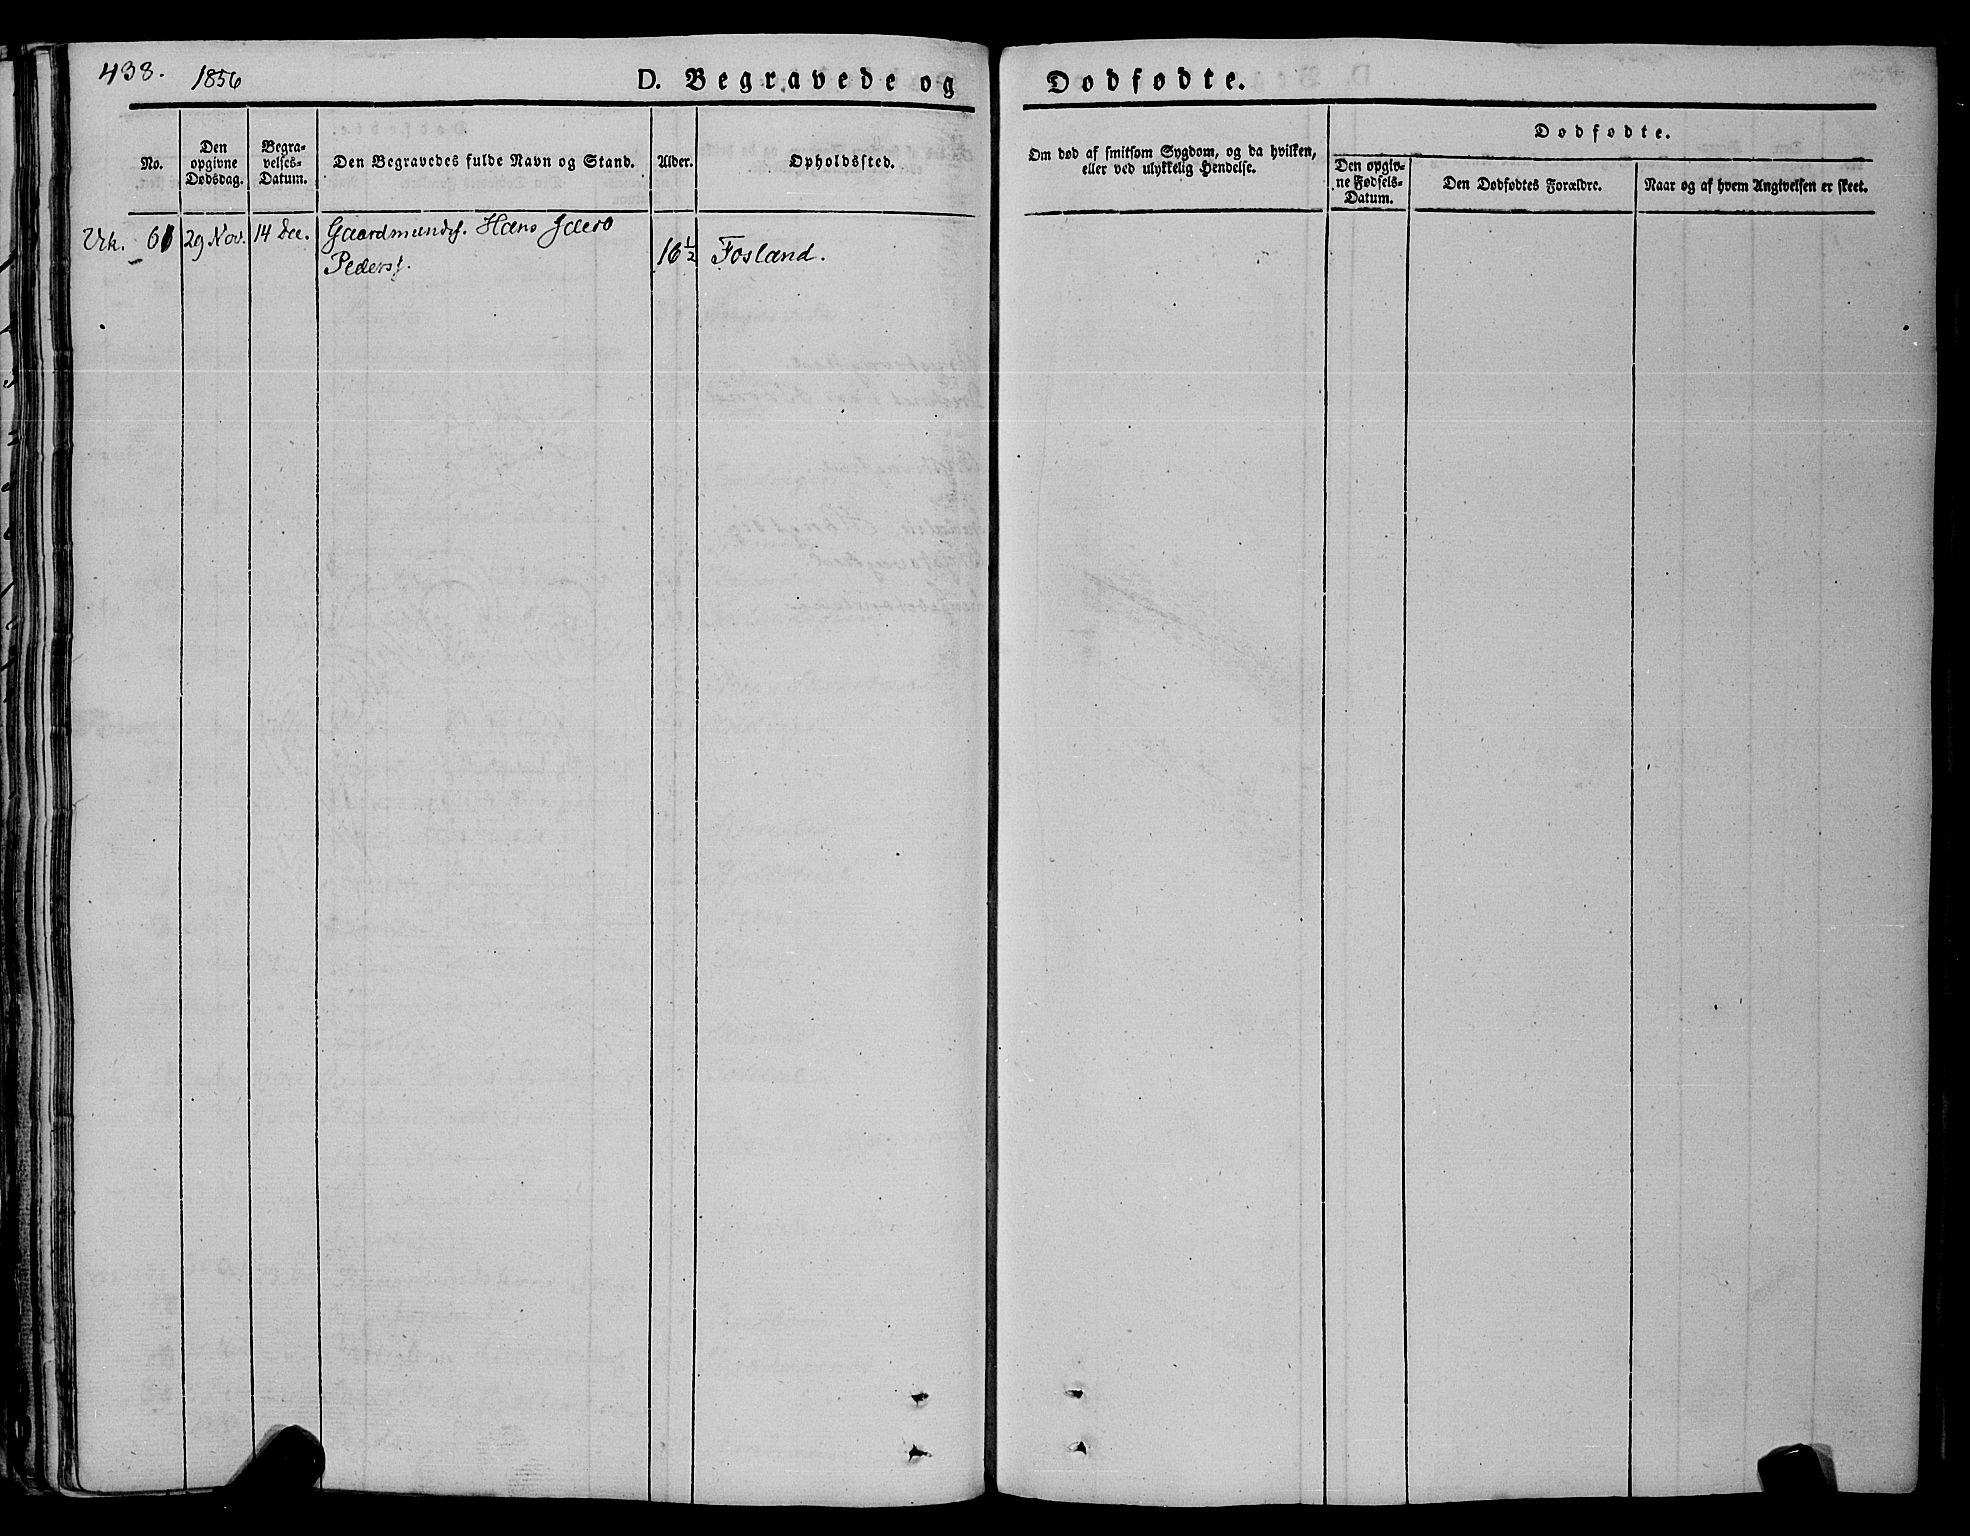 433.
1856
D. Begravede og
Dødfødte.
No.
Den opgivne Dødsdag.
Begra-
velses-
Datum.
Den Begravedes fulde Navn og Stand.
Alder.
Opholdssted.
Om død af smitsom Sygdom, og da hvilken,
eller ved ulykkelig Hendelse.
Dødfødte.
Den opgiv-
ne Fødsels-
Datum.
Den Dødfødtes Forældre.
Naar og af hvem Angivelsen er skeet.
61 29 Nov. 14 Dec. Gaardmands. Hans
Peders. 16½ Fosland.